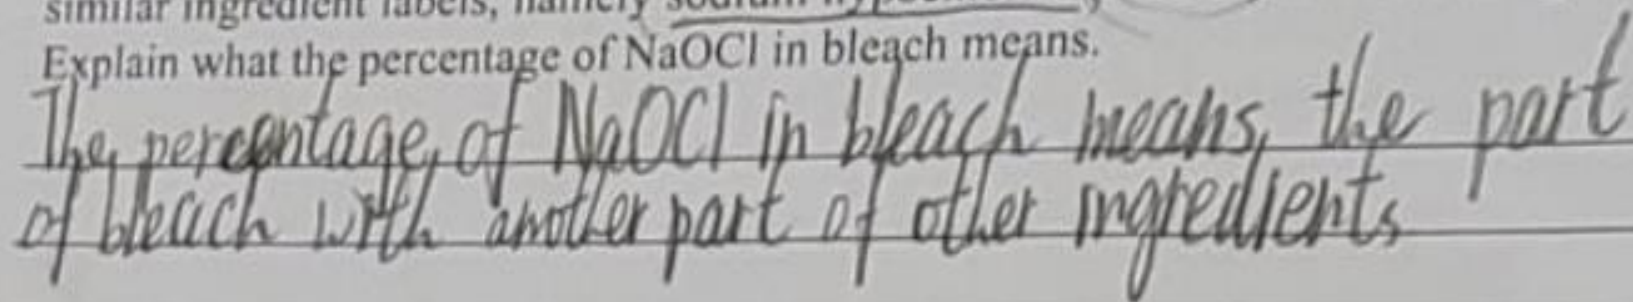 similar ingredient labels, namely sodium
Explain what the percentage of NaOCl in bleach means.
The percentage of NaOCl in bleach means, the part
of bleach with another part of other ingredients